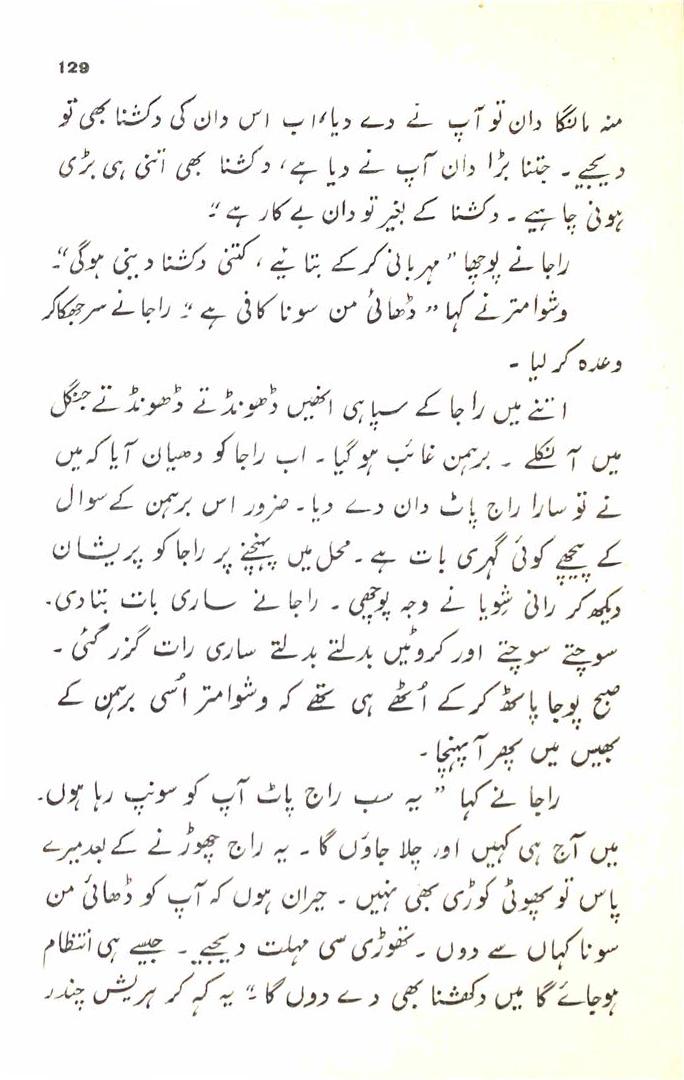 129
منہ مانگا دان تو آپ نے دے دیا، اب اس دان کی دکشنا بھی تو
دیجیے ۔ جتنا بڑا دان آپ نے دیا ہے، دکشنا بھی اتنی ہی بڑی
ہونی چاہیے ۔ دکشنا کے بغیر تو دان بے کار ہے ۔“
راجا نے پوچھا ”مہربانی کرکے بتائیے، کتنی دکشنا دینی ہوگی“۔
وشوامتر نے کہا ”ڈھائی من سونا کافی ہے ۔“ راجا نے سر جھکا کر
وعدہ کر لیا ۔
اتنے میں راجا کے سپاہی انھیں ڈھونڈتے ڈھونڈتے جنگل
میں آ نکلے ۔ برہمن غائب ہو گیا ۔ اب راجا کو دھیان آیا کہ میں
نے تو سارا راج پاٹ دان دے دیا ۔ ضرور اس برہمن کے سوال
کے پیچھے کوئی گہری بات ہے ۔ محل میں پہنچنے پر راجا کو پریشان
دیکھ کر رانی شِویا نے وجہ پوچھی ۔ راجا نے ساری بات بتا دی۔
سوچتے سوچتے اور کروٹیں بدلتے بدلتے ساری رات گزر گئی ۔
صبح پوجا پاٹھ کرکے اُٹھے ہی تھے کہ وشوامتر اُسی برہمن کے
بھیس میں پھر آ پہنچا ۔
راجا نے کہا ”یہ سب راج پاٹ آپ کو سونپ رہا ہوں۔
میں آج ہی کہیں اور چلا جاؤں گا ۔ یہ راج چھوڑنے کے بعد میرے
پاس تو پھوٹی کوڑی بھی نہیں ۔ حیران ہوں کہ آپ کو ڈھائی من
سونا کہاں سے دوں ۔ تھوڑی سی مہلت دیجیے ۔ جیسے ہی انتظام
ہوجائے گا میں دکشنا بھی دے دوں گا ۔“ یہ کہہ کر ہریش چندر